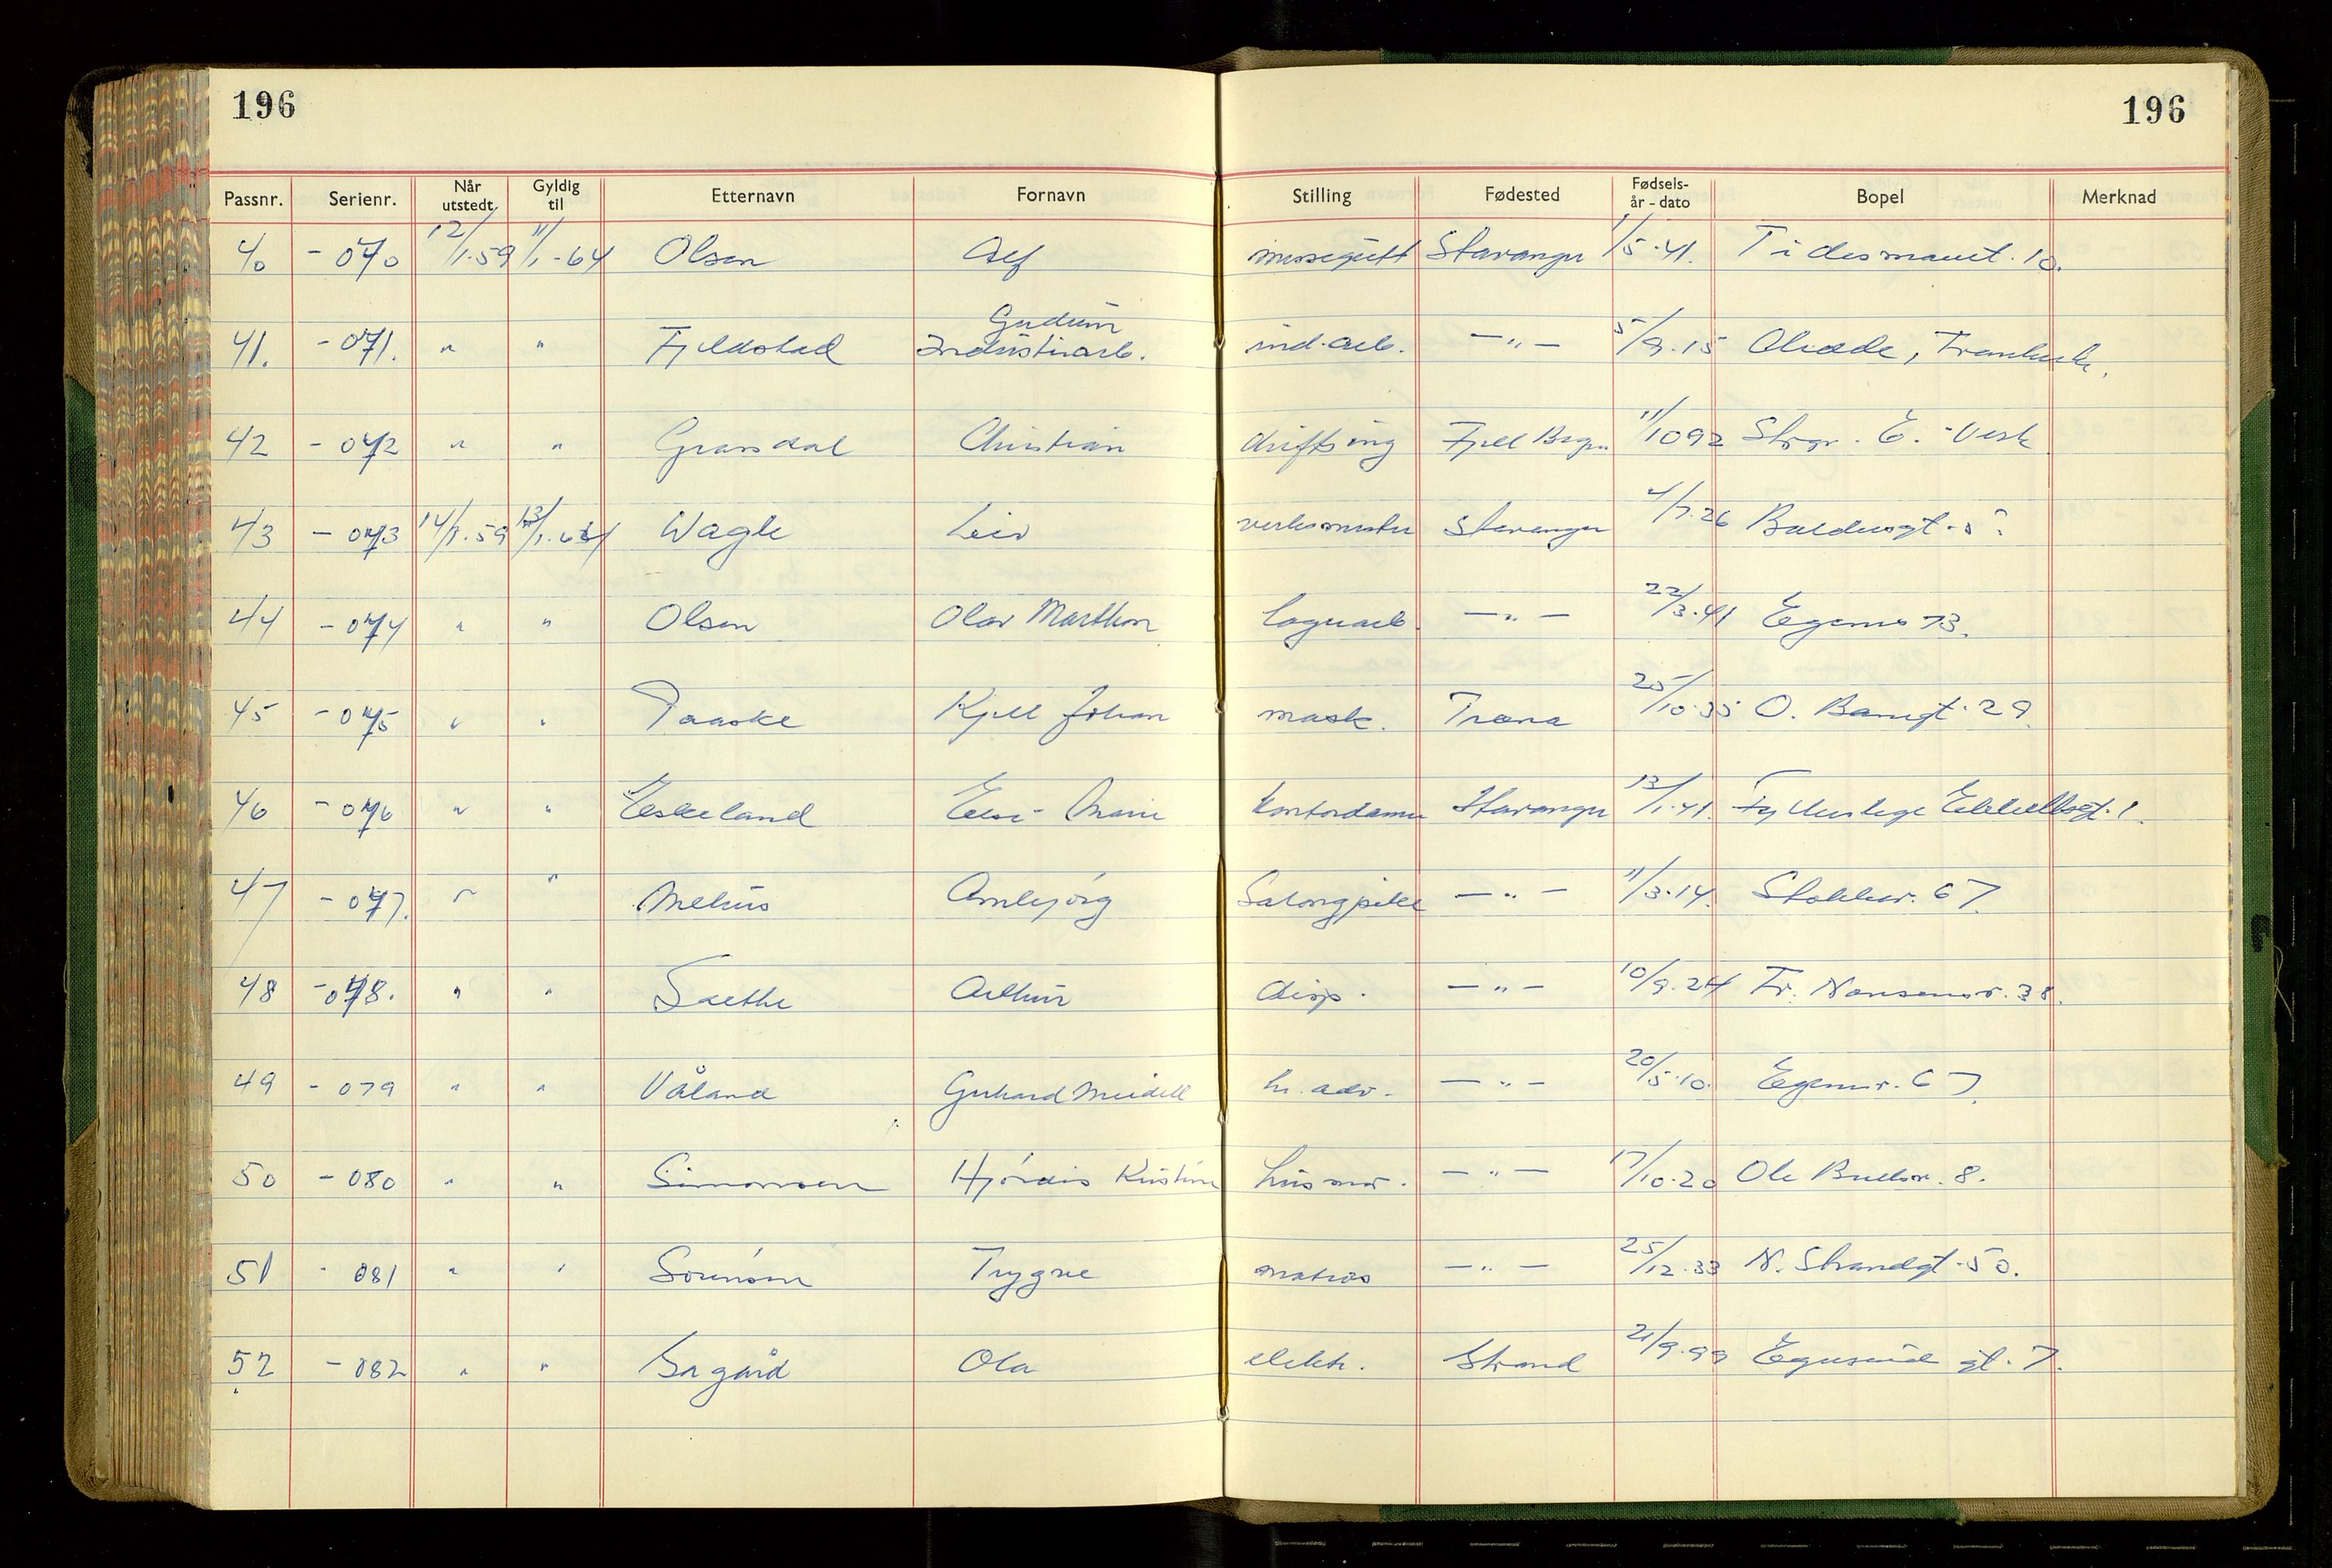 196 196
Passnr. Serienr. Når utstedt Gyldig til Etternavn Fornavn Stilling Fødested Fødsels-år - dato Bopel Merknad
40 - 070 12/1.59 11/1-64 Olsen messegutt Stavanger 1/5.41. Tidesmannst. 10.
Gudrun
41. - 071. " " Fjeldstad Industriarb. ind.arb. — " — 5/9.15
42 - 072 " " Christian drifts ing Fjell Brgn 11/1092 Stvgr. E.-Verk
43 - 073 14/1.59 13/1.64 Wagle Leiv verksmester Stavanger 4/7.26 Baldersgt. 5
44 - 074 " " Olsen Olav Marthon lagerarb. — " — 22/3.41 Egenesv 73.
45 - 075 " " Paaske Kjell Johan mask. Træna 25/10.35 Ø. Banegt. 29.
46 - 076 " " Eskeland Else Marie kontordame Stavanger 13/1.41.
47 - 077. " " Melhus Annbjørg Salongpike — " — 11/3.14. Stokkav. 67.
48 - 078. " " Sæthe Arthur disp. — " — 10/9.24 Fr. Nansensv. 38.
49 - 079 " " Våland Gerhard Meidell hr. adv. — " — 20/5.10. Egenesv. 67.
50 - 080 " " Simonsen Hjørdis Kristine husmor. — " — 17/10.20 Ole Bullsv. 8.
51 - 081 " " Sørensen Trygve matros — " — 25/12.33 N. Strandgt. 50.
52 - 082 " " Ola elektr. Strand 21/9.99 Egersund gt. 7.